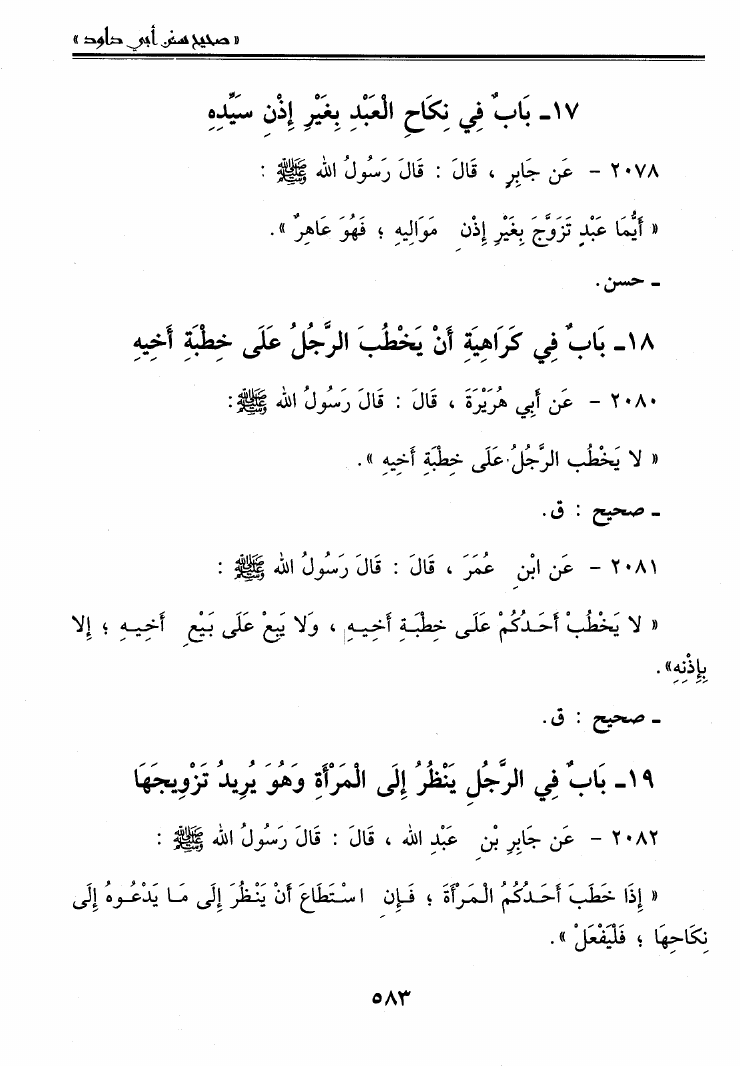 « صحيح سنن أبي داود »
١٧ـ بَابٌ فِي نِكَاحِ الْعَبْدِ بِغَيْرِ إِذْنِ سَيِّدِهِ
٢٠٧٨ – عَن جَابِرٍ ، قَالَ : قَالَ رَسُولُ الله ﷺ :
« أَيُّمَا عَبْدٍ تَزَوَّجَ بِغَيْرِ إِذْنِ مَوَالِيهِ ؛ فَهُوَ عَاهِرٌ ».
ـ حسن.
١٨ـ بَابٌ فِي كَرَاهِيَةِ أَنْ يَخْطُبَ الرَّجُلُ عَلَى خِطْبَةِ أَخِيهِ
٢٠٨٠ – عَن أَبِي هُرَيْرَةَ ، قَالَ : قَالَ رَسُولُ الله ﷺ:
« لا يَخْطُب الرَّجُلُ عَلَى خِطْبَةِ أَخِيهِ ».
ـ صحيح : ق.
٢٠٨١ – عَن ابْنِ عُمَرَ ، قَالَ : قَالَ رَسُولُ الله ﷺ :
« لا يَخْطُبْ أَحَدُكُمْ عَلَى خِطْبَةِ أَخِيهِ ، وَلا يَبِعْ عَلَى بَيْعِ أَخِيهِ ؛ إِلا
بِإِذْنِهِ».
ـ صحيح : ق.
١٩ـ بَابٌ فِي الرَّجُلِ يَنْظُرُ إِلَى الْمَرْأَةِ وَهُوَ يُرِيدُ تَزْوِيجَهَا
٢٠٨٢ – عَن جَابِرِ بْنِ عَبْدِ الله ، قَالَ : قَالَ رَسُولُ الله ﷺ :
« إِذَا خَطَبَ أَحَدُكُمُ الْمَرْأَةَ ؛ فَإِنِ اسْتَطَاعَ أَنْ يَنْظُرَ إِلَى مَا يَدْعُوهُ إِلَى
نِكَاحِهَا ؛ فَلْيَفْعَلْ ».
٥٨٣